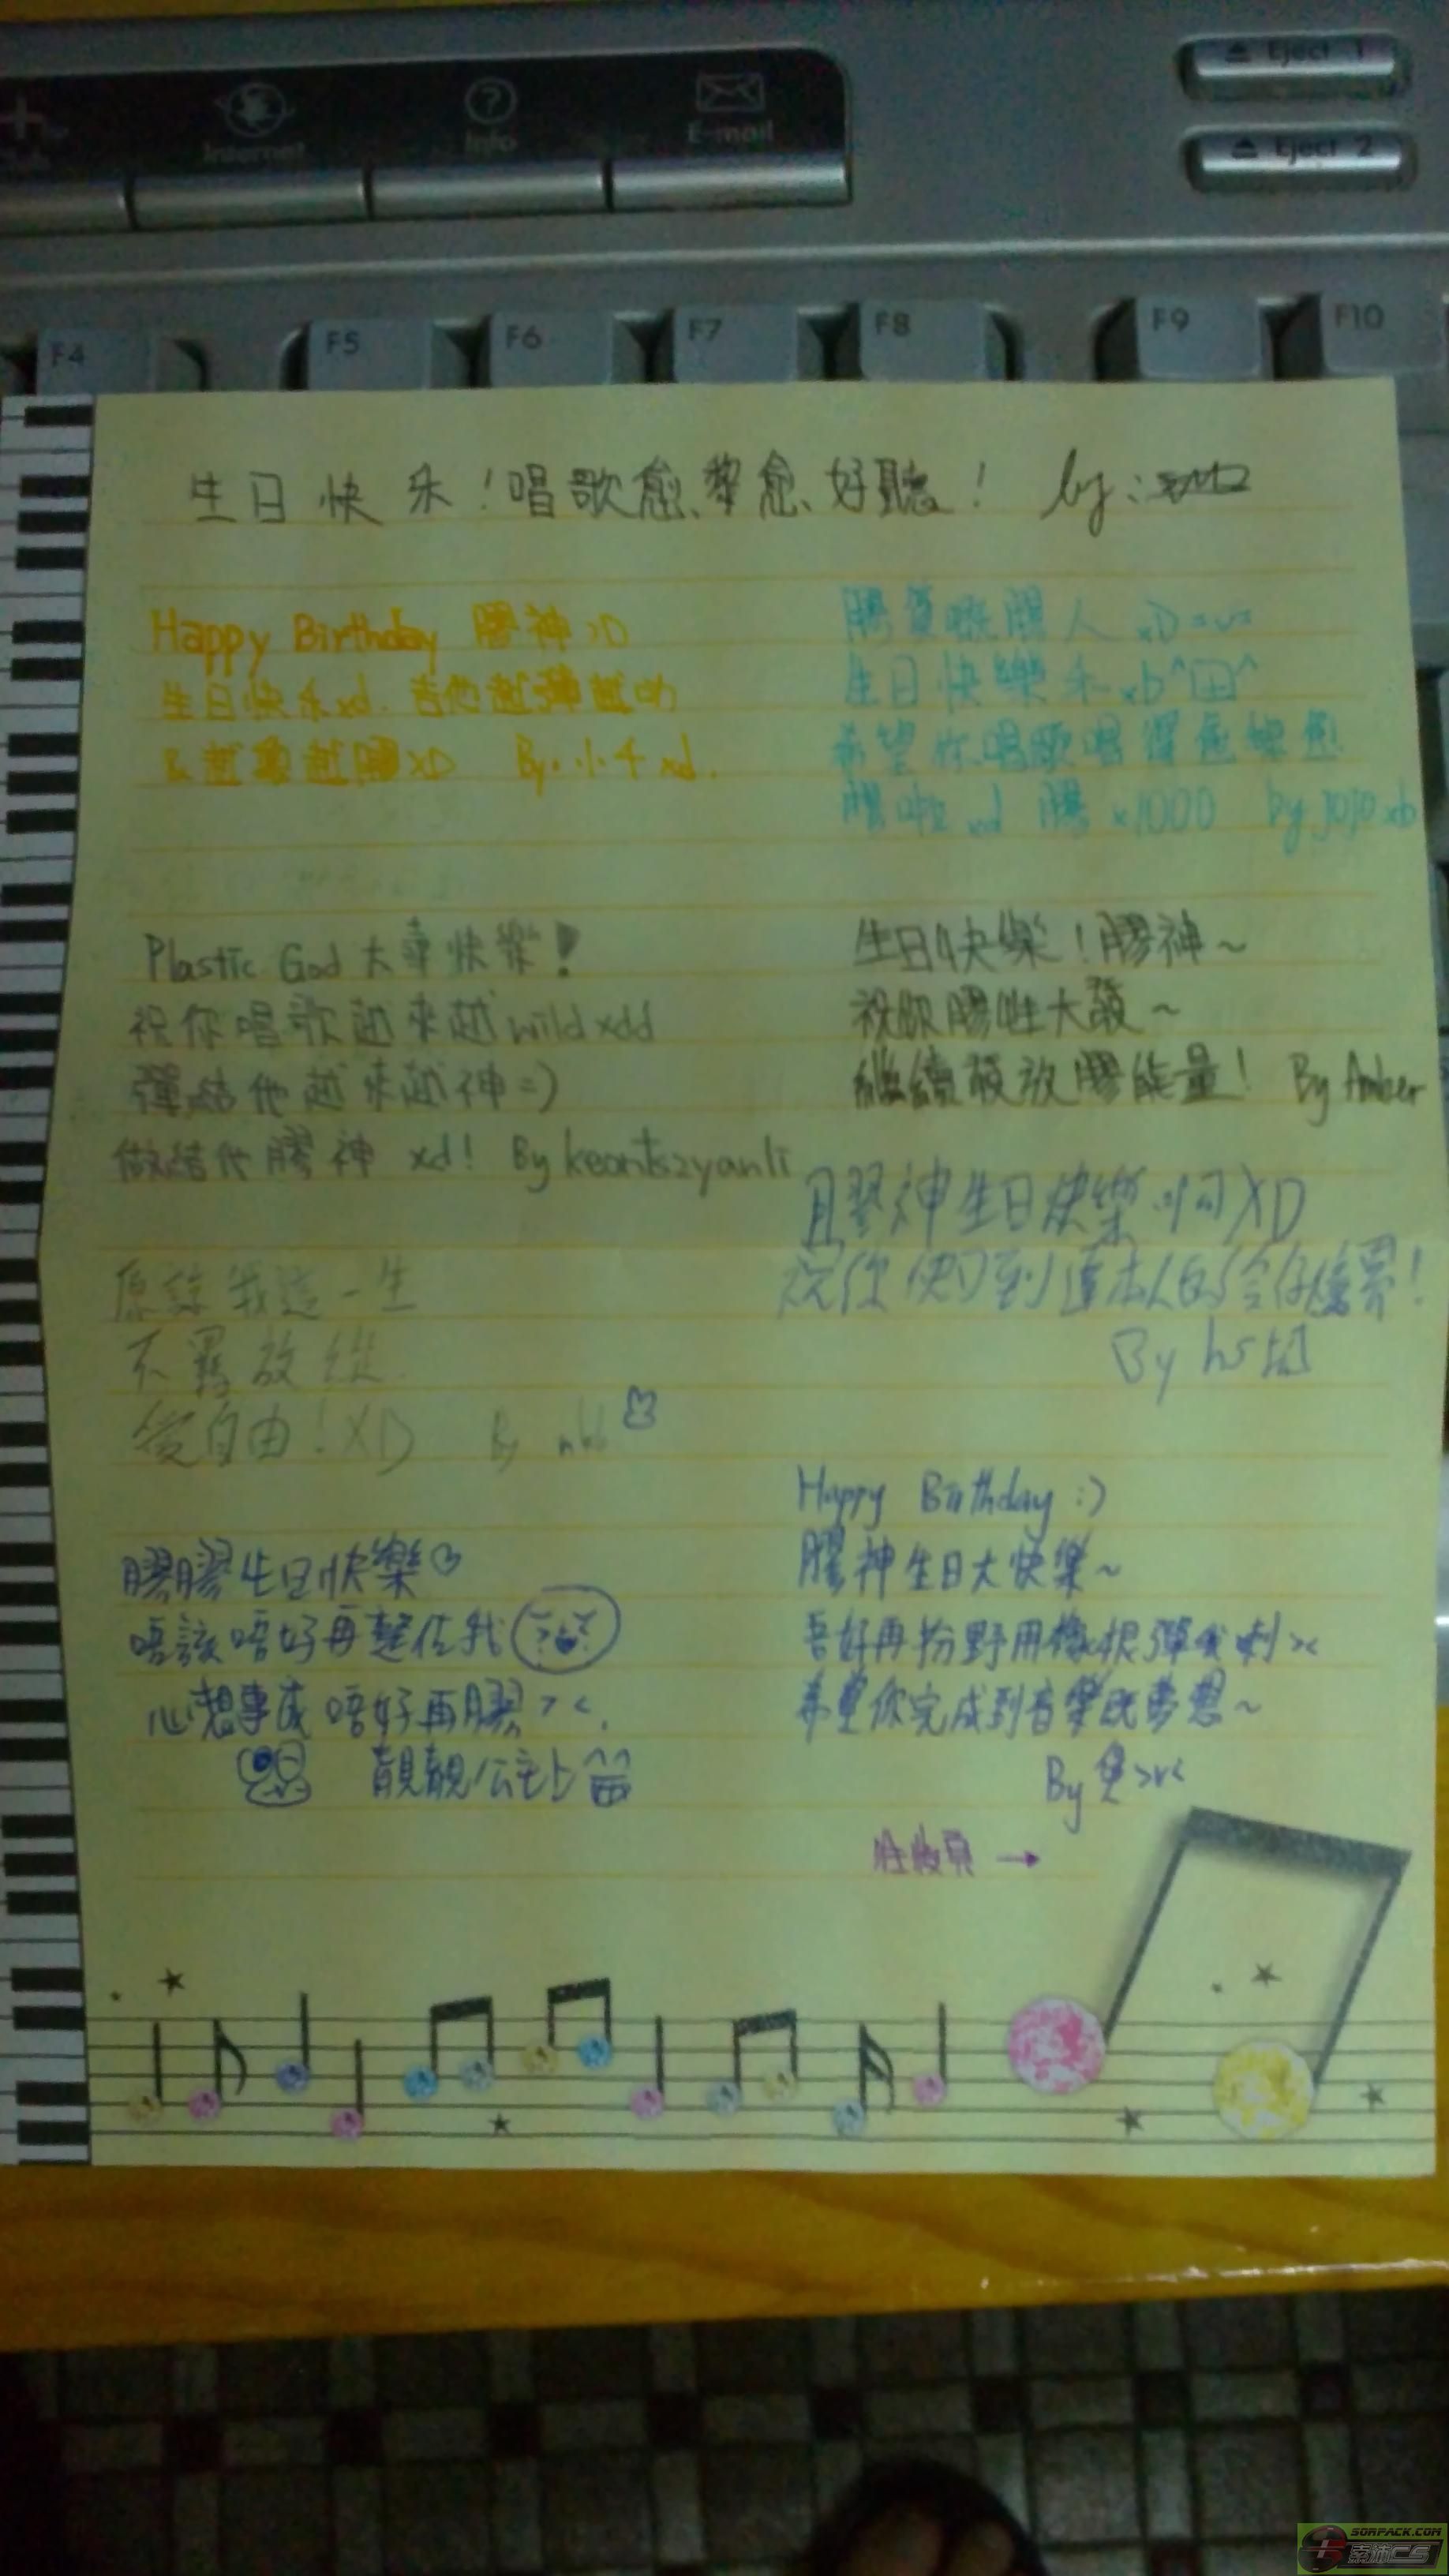 Internet
Info
E-mail
Eject 1
Eject 2
F4 F5 F6 F7 F8 F9 F10
生日快乐！唱歌愈黎愈好聽！ by:
Happy Birthday 膠神 XD
生日快乐xd. 吉他越彈越
& 越 越膠XD By. 小千 xd.
膠 人 xD =v=
生日快樂 xb^田^
希望你唱歌唱得愈 愈
膠啦 xd 膠 x1000 by jojo xb
Plastic God 大壽快樂！
祝你唱歌越來越wild xdd
彈結他越來越神=)
做結他膠神 xd! By keontszyanli
生日快樂！膠神~
祝你膠性大發~
繼續發放膠能量！ By Amber
膠神生日快樂呵XD
祝你
By hs
原諒我這一生
不羈放縱
愛自由！XD By
膠膠生日快樂
唔該唔好再 我
心想事成 唔好再膠><.
靚靚公主上
Happy Birthday :)
膠神生日大快樂~
吾好再扮野用橡根彈我喇><
希望你完成到音樂既夢想~
By
→
SORPACK.COM